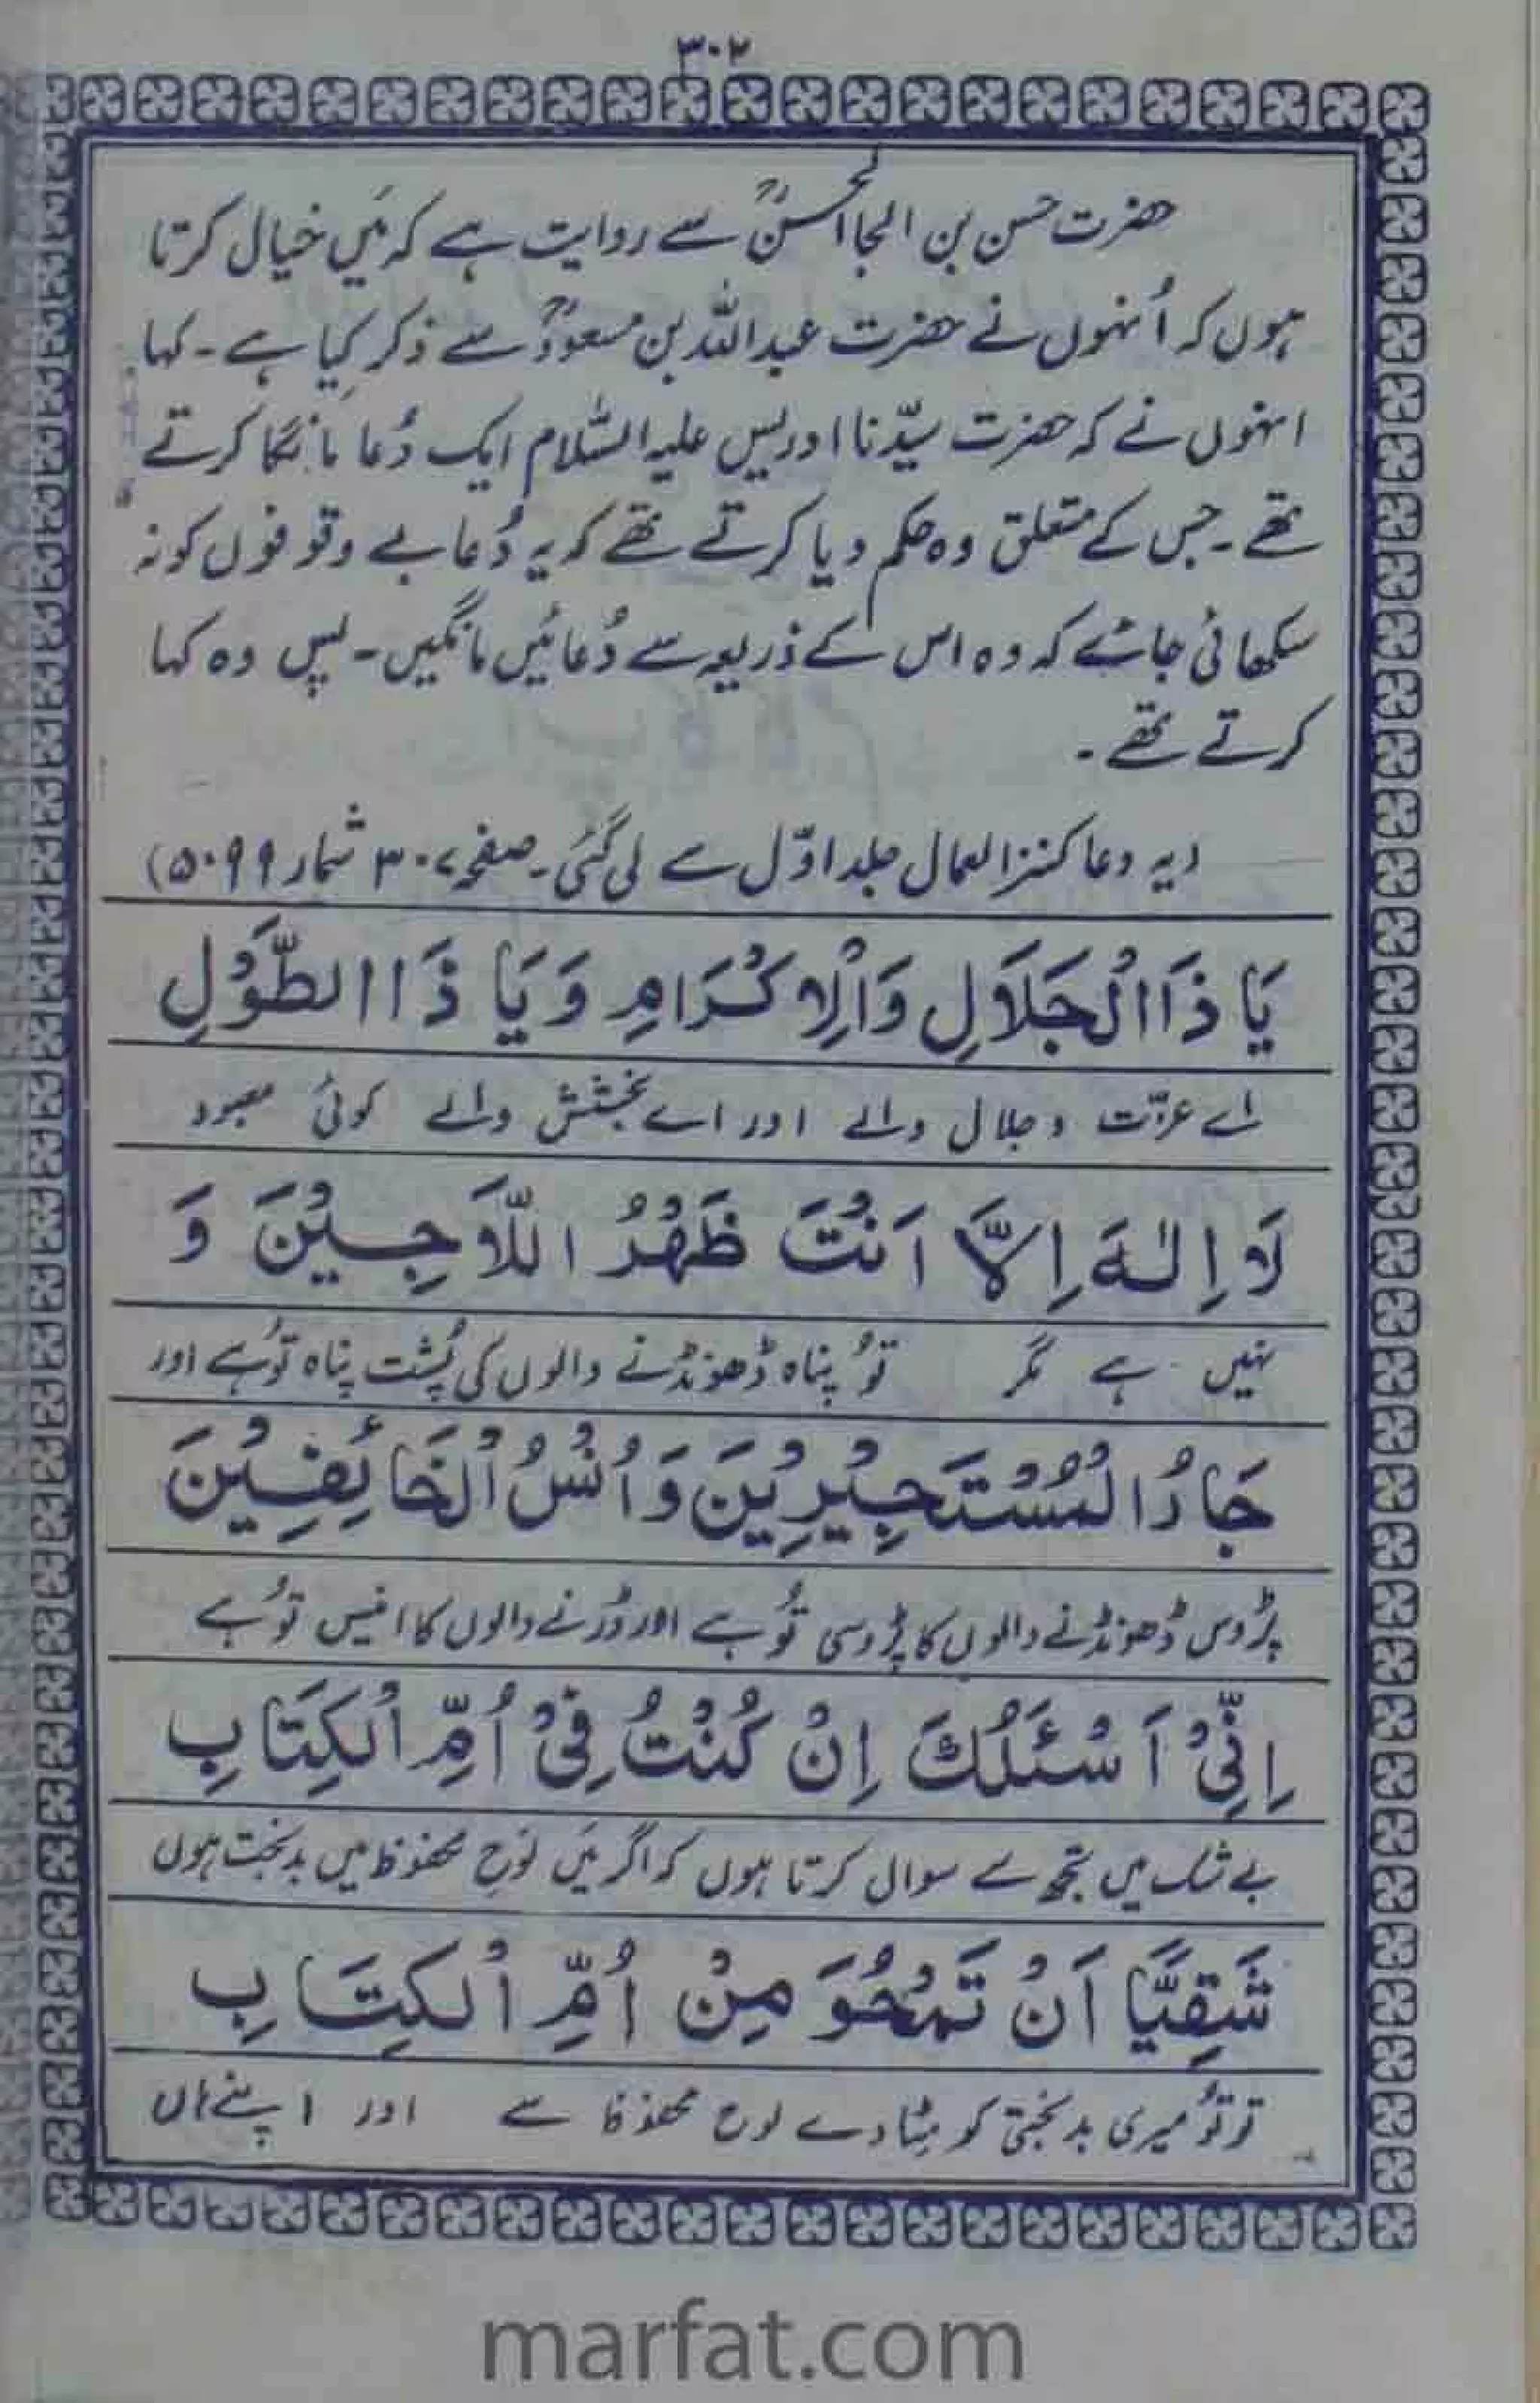 ۳۰۲
حضرت حسن بن ابی الحسنؒ سے روایت ہے کہ مَیں خیال کرتا
ہوں کہ اُنہوں نے حضرت عبداللہ بن مسعودؓ سے ذکر کیا ہے۔ کہا
انہوں نے کہ حضرت سیّدنا ادریس علیہ السّلام ایک دُعا مانگا کرتے
تھے۔ جس کے متعلق وہ حکم دیا کرتے تھے کہ یہ دُعا بے وقوفوں کو نہ
سکھائی جائے کہ وہ اس کے ذریعہ سے دُعائیں مانگیں۔ پس وہ کہا
کرتے تھے۔
(یہ دعا کنز العمال جلد اوّل سے لی گئی۔ صفحہ ۳۰۷ شمار ۵۰۹۹)
يَا ذَاالْجَلَالِ وَالْاِكْرَامِ وَيَا ذَا الطَّوْلِ
اے عزّت و جلال والے اور اے بخشش والے کوئی معبود
لَا اِلٰهَ اِلَّا اَنْتَ ظَهْرُ اللَّاجِيْنَ وَ
نہیں ہے مگر تُو پناہ ڈھونڈنے والوں کی پُشت پناہ تُو ہے اور
جَارُ الْمُسْتَجِيْرِيْنَ وَ اُنْسُ الْخَائِفِيْنَ
پڑوس ڈھونڈنے والوں کا پڑوسی تُو ہے اور ڈرنے والوں کا انیس تُو ہے
اِنِّيْ اَسْئَلُكَ اِنْ كُنْتُ فِيْ اُمِّ الْكِتَابِ
بے شک میں تجھ سے سوال کرتا ہوں کہ اگر مَیں لَوحِ محفوظ میں بدبخت ہوں
شَقِيًّا اَنْ تَمْحُوَ مِنْ اُمِّ الْكِتَابِ
تو تُو میری بدبختی کو مٹا دے لوح محفوظ سے اور اپنے ہاں
marfat.com